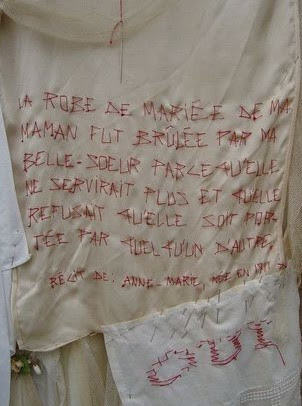 LA ROBE DE MARIÉE DE MA
MAMAN FUT BRÛLÉE PAR MA
BELLE-SOEUR PARCE QU'ELLE
NE SERVIRAIT PLUS ET QU'ELLE
REFUSAIT QU'ELLE SOIT POR-
TÉE PAR QUELQU'UN D'AUTRE.
RÉCIT DE: ANNE-MARIE, NÉE EN